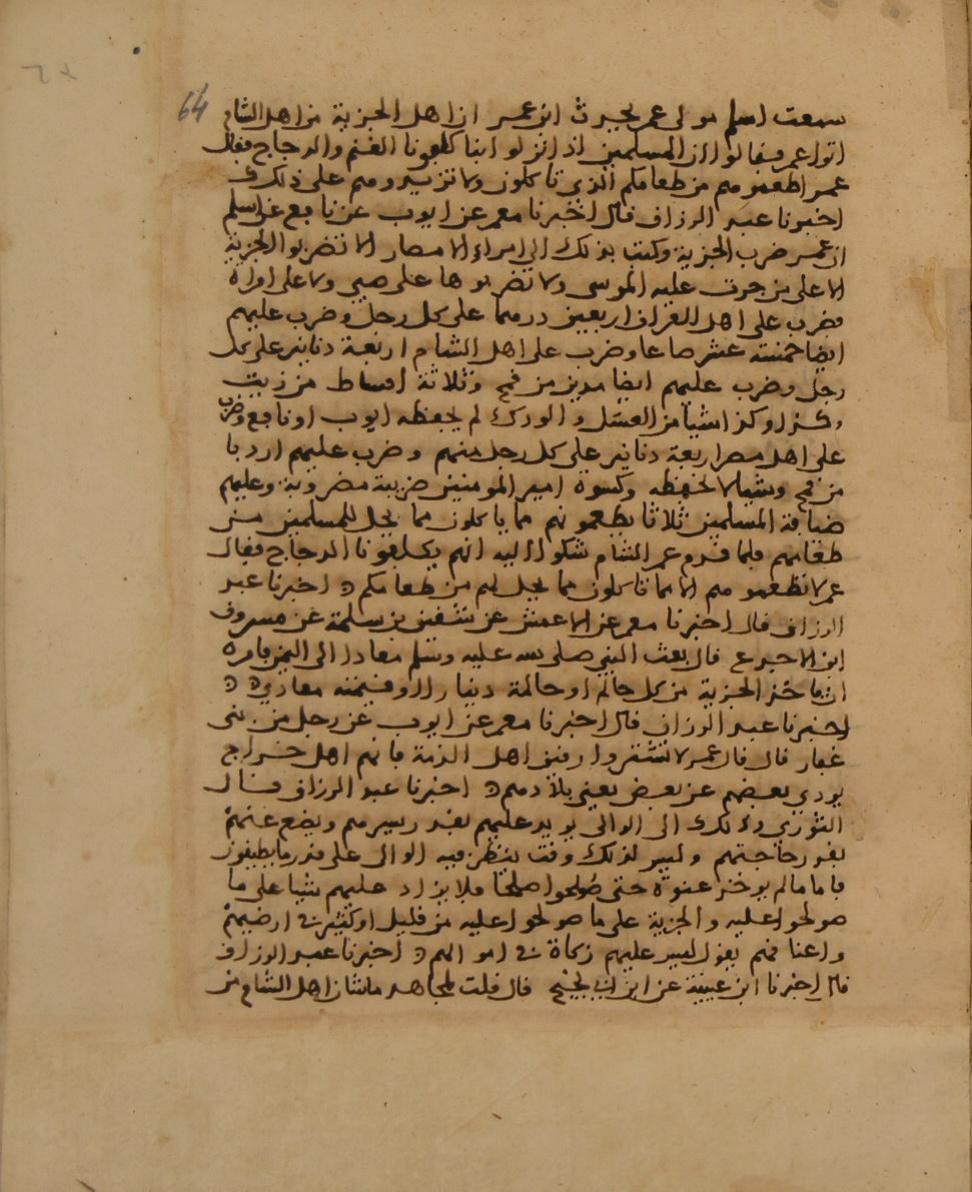 64
سمعت اسلم مولى عمر يحدث ابن عمر ان اهل الجزية من اهل الشام
اتوا عمر فقالوا ان المسلمين اذا نزلوا بنا كلفونا الغنم والدجاج فقال
عمر اطعموهم من طعامكم الذي تاكلون ولا تزيدوهم على ذلك
اخبرنا عبد الرزاق قال اخبرنا معمر عن ايوب عن نافع عن اسلم
ان عمر ضرب الجزية وكتب بذلك الى امراء الامصار الا تضربوا الجزية
الا على من جرت عليه الموسى ولا تضربوها على صبي ولا على امراة
فضرب على اهل العراق اربعين درهما على كل رجل وضرب عليهم
ايضا خمسة عشر صاعا وضرب على اهل الشام اربعة دنانير على كل
رجل وضرب عليهم ايضا مدين من قمح وثلاثة اقساط من زيت
وكذا وكذا شيا من العسل والودك لم يحفظه ايوب او نافع وضرب
على اهل مصر اربعة دنانير على كل رجل منهم وضرب عليهم اردبا
من قمح وشيا لا نحفظه وكسوة امير المومنين ضريبة مضروبة وعليهم
ضيافة المسلمين ثلاثا يطعمونهم مما ياكلون مما يحل للمسلمين من
طعامهم فلما قدم عمر الشام شكوا اليه انهم يكلفونا الدجاج فقال
عمر لا تطعموهم الا مما تاكلون مما يحل لهم من طعامكم اخبرنا عبد
الرزاق قال اخبرنا معمر عن الاعمش عن شقيق بن سلمة عن مسروق
ابن الاجدع قال بعث النبي صلى الله عليه وسلم معاذا الى اليمن فامره
ان ياخذ الجزية من كل حالم او حالمة دينارا او قيمته معافري
اخبرنا عبد الرزاق قال اخبرنا معمر عن ايوب عن رجل من بني
غفار قال قال عمر لا تشتروا رقيق اهل الذمة فانهم اهل خراج
يودي بعضهم عن بعض يعني بلادهم اخبرنا عبد الرزاق قال
الثوري وذلك الى الوالي يزيد عليهم بقدر يسرهم ويضع عنهم
بقدر حاجتهم وليس لذلك وقت ينظر فيه الوالي على قدر ما يطيقون
فاما ما لم يوخذ عنوة حتى صولحوا صلحا فلا يزاد عليهم شيا على ما
صولحوا عليه والجزية على ما صولحوا عليه من قليل او كثير في ارضيهم
واعناقهم يقول ليس عليهم زكاة في اموالهم اخبرنا عبد الرزاق
قال اخبرنا ابن عيينة عن ابن ابي نجيح قال قلت لمجاهد ما شان اهل الشام من